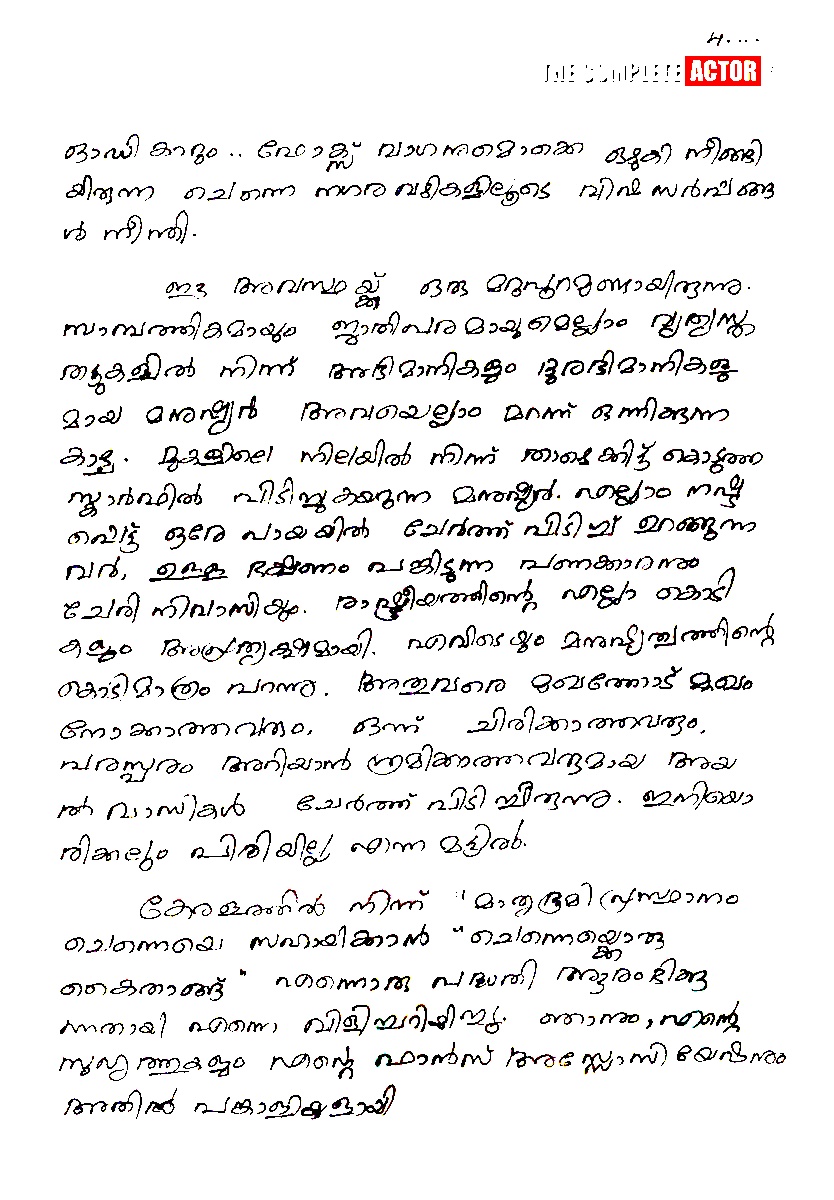 4....
THE COMPLETE ACTOR
ഓഡി കാറും .. ഫോക്സ് വാഗനുമൊക്കെ ഒഴുകി നീങ്ങി
യിരുന്ന ചെന്നൈ നഗര വഴികളിലൂടെ വിഷ സർപ്പങ്ങ
ൾ നീന്തി.
ഈ അവസ്ഥയ്ക്ക് ഒരു മറുപുറമുണ്ടായിരുന്നു.
സാമ്പത്തികമായും ജാതിപരമായുമെല്ലാം വ്യത്യസ്ത
തട്ടുകളിൽ നിന്ന് അഭിമാനികളും ദുരഭിമാനികളു
മായ മനുഷ്യർ അവയെല്ലാം മറന്ന് ഒന്നിക്കുന്ന
കാഴ്ച. മുകളിലെ നിലയിൽ നിന്ന് താഴെക്കിട്ട് കൊടുത്ത
സ്കാർഫിൽ പിടിച്ചുകയറുന്ന മനുഷ്യൻ. എല്ലാം നഷ്ട
പ്പെട്ട് ഒരേ പായയിൽ ചേർത്ത് പിടിച്ച് ഉറങ്ങുന്ന
വർ, ഉള്ള ഭക്ഷണം പങ്കിടുന്ന പണക്കാരനും
ചേരി നിവാസിയും. രാഷ്ട്രീയത്തിന്റെ എല്ലാ കൊടി
കളും അപ്രത്യക്ഷമായി. എവിടെയും മനുഷ്യത്വത്തിന്റെ
കൊടിമാത്രം പറന്നു. അതുവരെ മുഖത്തോട് മുഖം
നോക്കാത്തവരും, ഒന്ന് ചിരിക്കാത്തവരും,
പരസ്പരം അറിയാൻ ശ്രമിക്കാത്തവരുമായ അയ
ൽ വാസികൾ ചേർത്ത് പിടിച്ചിരുന്നു. ഇനിയൊ
രിക്കലും പിരിയില്ല എന്ന മട്ടിൽ.
കേരളത്തിൽ നിന്ന് "മാതൃഭൂമി പ്രസ്ഥാനം
ചെന്നൈയെ സഹായിക്കാൻ "ചെന്നൈയ്ക്കൊരു
കൈതാങ്ങ്" എന്നൊരു പദ്ധതി ആരംഭിക്കു
ന്നതായി എന്നെ വിളിച്ചറിയിച്ചു. ഞാനും, എന്റെ
സുഹൃത്തുകളും എന്റെ ഫാൻസ് അസ്സോസിയേഷനും
അതിൽ പങ്കാളികളായി